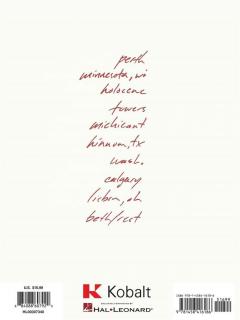 perth
minnesota, wi
holocene
towers
michicant
hinnom, tx
wash.
calgary
lisbon, oh
beth/rest
U.S. $16.99
HL00307340
Kobalt
HAL•LEONARD®
51699